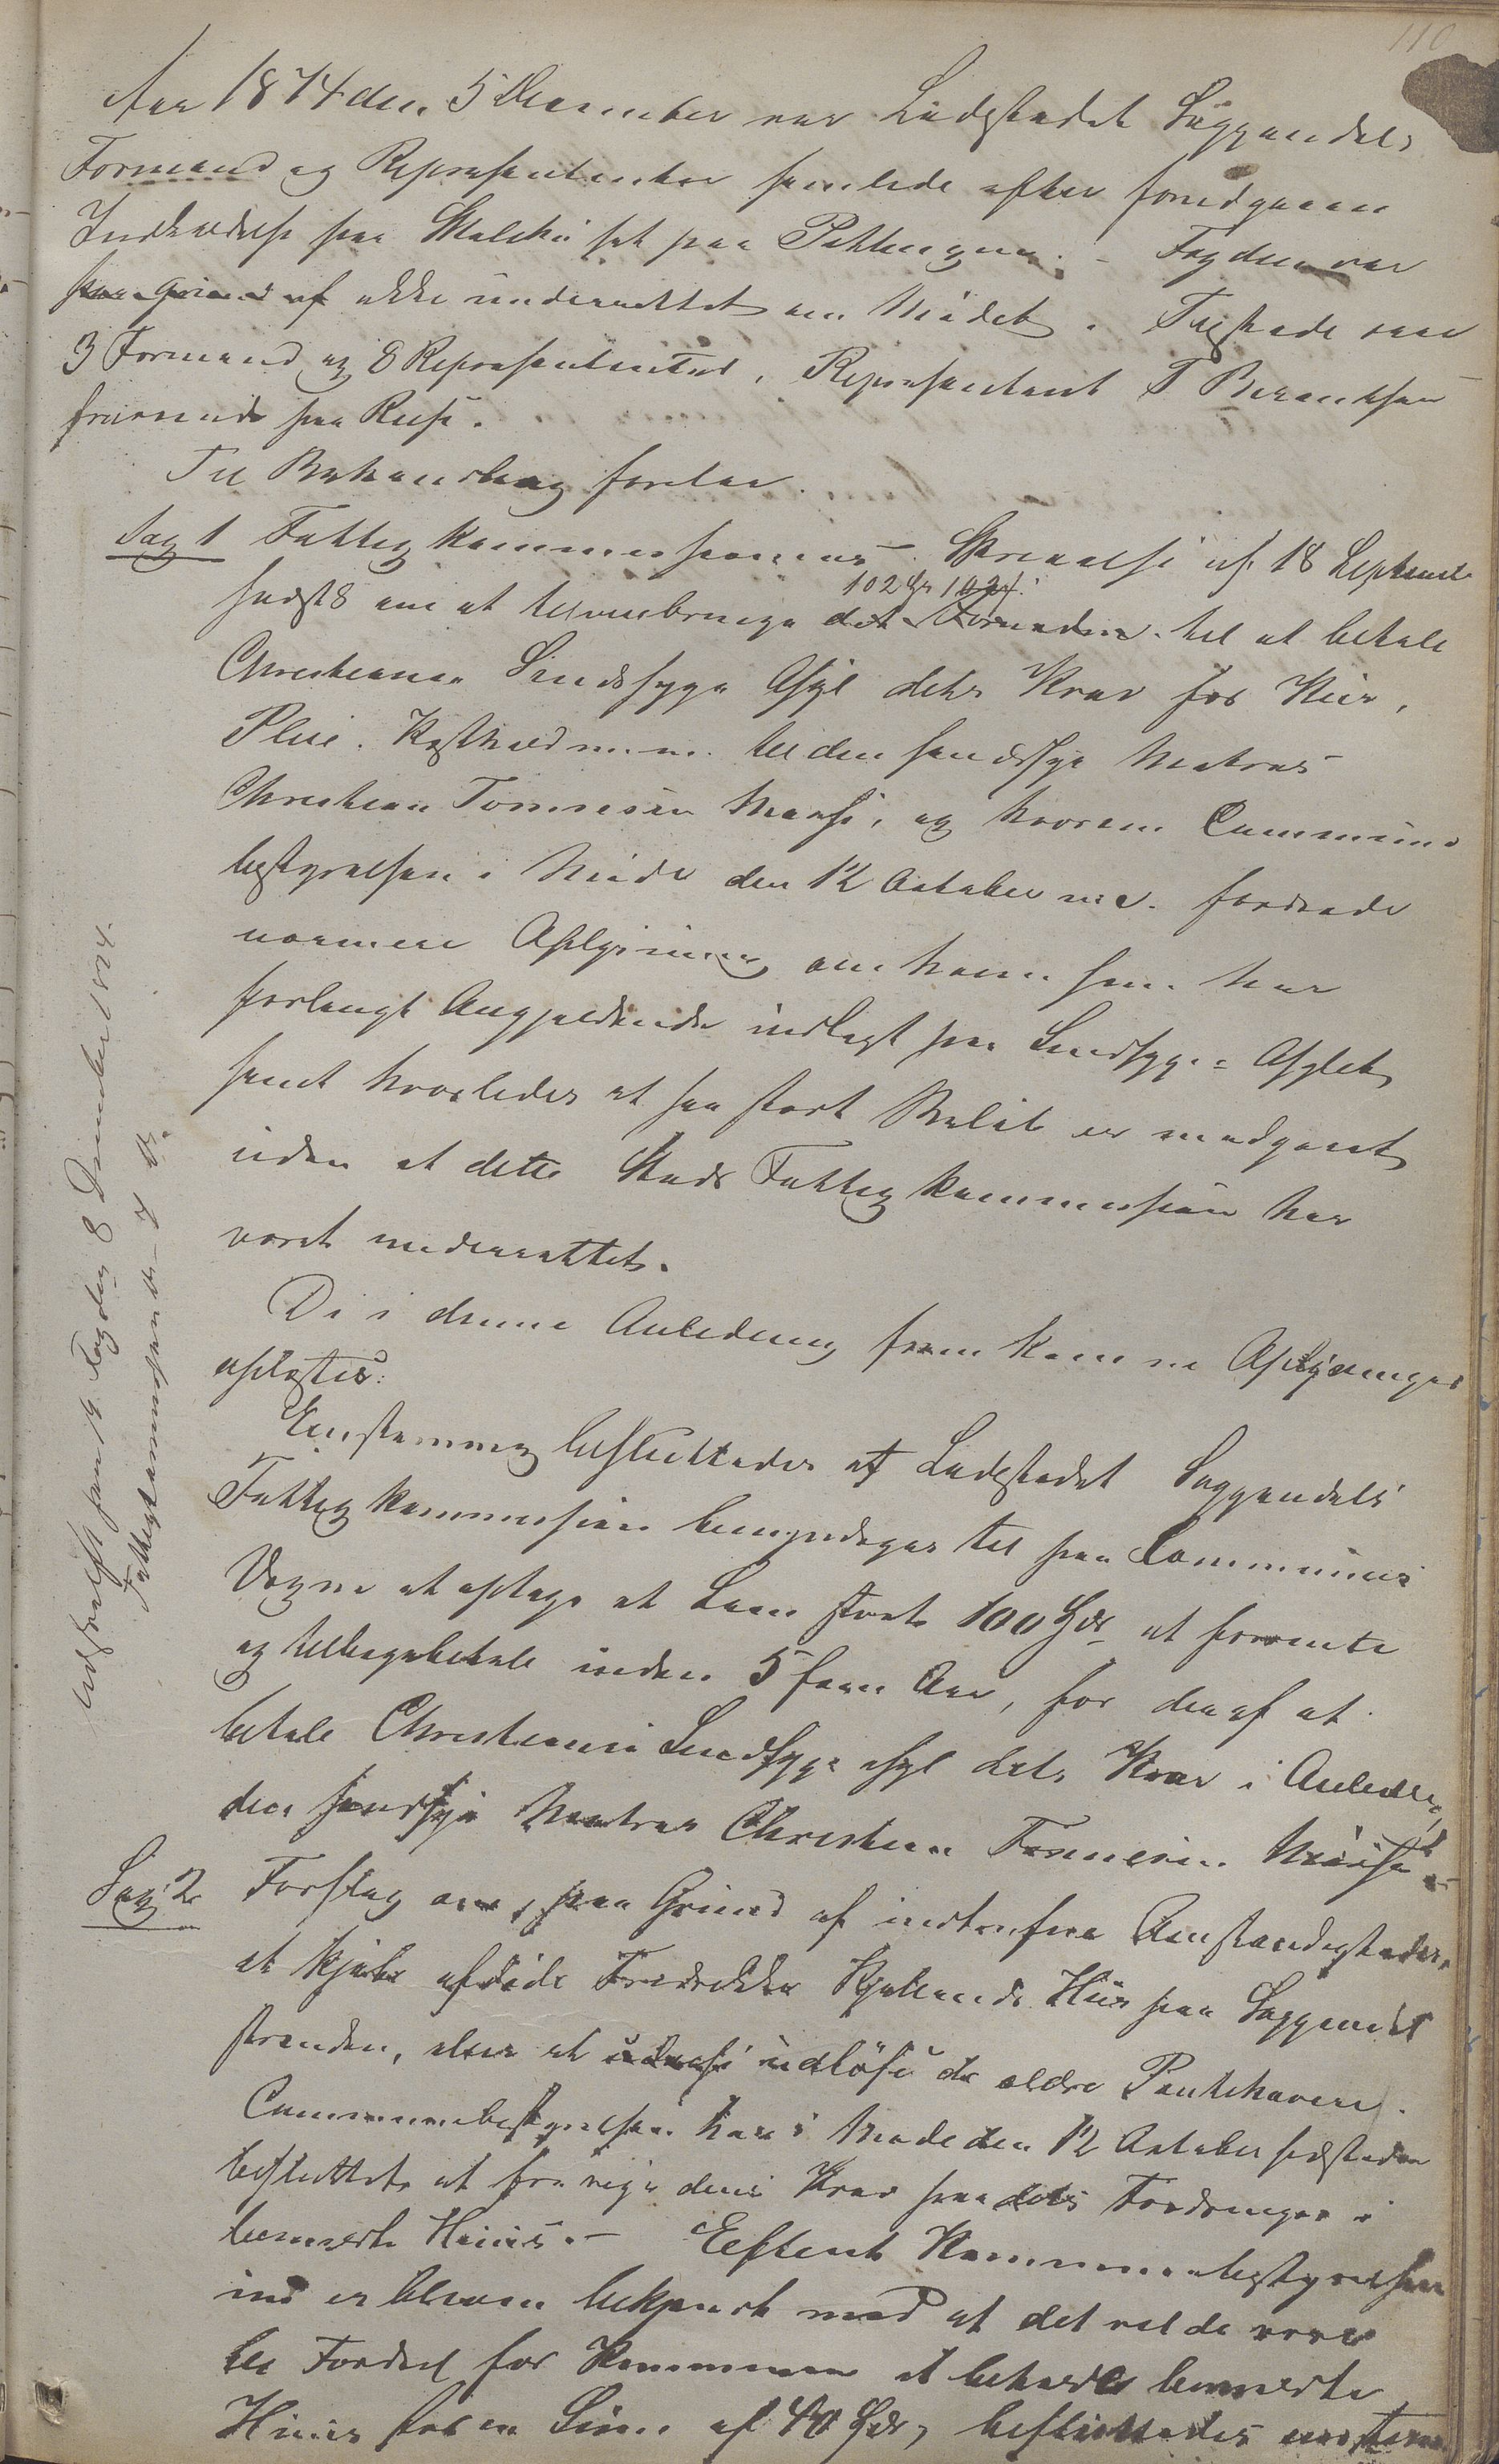 110
Aar 1874 den 5 December var Ladestedet Soggendals
Formænd og Repræsentanter samlede efter foredgaaen
Indkaldelse paa Skolehuset paa Pettengen. – Fogden var
paa Grund af ikke underrettet om Mödet. Tilstede var
3 Formænd og 8 Repræsentanter, Repræsentant T Berentsen
fraværende paa Reise.
Til Behandling forelaa.
Sag 1 Fattigkommissionens Skrivelse af 18 Septemb
sidstl om at tilveiebringe det Fornødne 102 Spd 102 s. til at betale
Christiania Sindssyge Asyl dets Krav for Kur,
Pleie. Kosthold m.m. til den sindssyge Matros
Christian Tönnesen Moursi, og hvorom Commune
bestyrelsen i Möde den 12 October m.a. fordrede
nærmere Oplysning om hvem som har
forlangt Angjældende indlagt paa Sindsyge=Asylet
samt hvorledes et saa stort Belöb er medgaaet
uden at dette Steds Fattigkommission har
været underrettet.
De i denne Anledning fremkomne Oplysninger
oplæstes.
Eenstemmig besluttedes at Ladestedet Soggendals
Fattigkommission bemyndiges til paa Communens
Vegne at optage et Laan stort 100 Spd at forrente
og tilbagebetale inden 5 fem Aar, for deraf at
betale Christiania Sindsyge asyl dets Krav i Anledn,
den sindsyge Matros Christian Tönnesen Moursi –
Sag 2 Forslag om, paa Grund af indtrufne Omstændigheder,
at kjøbe afdöde Fredrikke Kjellands Huus paa Soggendal
stranden, eller at udlöse de ældre Panthavere.
Communebestyrelsen har i Möde den 12 October sidstleden
besluttet at fravige deres Krav paa dets Fordringer i
bemeldte Huus. – Eftersat Kommunebestyrelsen
nu er bleven bekjendt med at det vilde være
til Fordel for Kommunen at beholde bemeldte
Huus for en Sum af 40 Spd, besluttedes eenstem
Udskrift sendt Fogden 8 December 1874.
Fattigkommissionen do 7 do